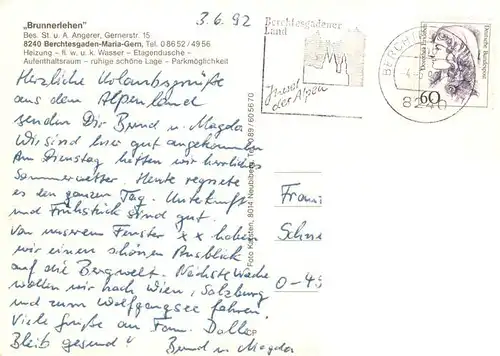 "Brunnerlehen"
Bes. St. u. A. Angerer, Gernerstr. 15
8240 Berchtesgaden-Maria-Gern, Tel. 0 86 52 / 49 56
Heizung – fl. w. u. k. Wasser – Etagendusche –
Aufenthaltsraum – ruhige schöne Lage – Parkmöglichkeit
3.6.92
Herzliche Urlaubsgrüße
aus dem Alpenland
senden Dir Bernd u. Magda
Wir sind hier gut angekommen
Am Dienstag hatten wir herrliches
Sommerwetter. Heute regnete
es den ganzen Tag. Unterkunft
und Frühstück sind gut.
Von unserem Fenster x x haben
wir einen schönen Ausblick
auf die Bergwelt. Nächste Woche
wollen wir nach Wien, Salzburg
und zum Wolfgangsee fahren.
Viele Grüße an Fam. Dalles
Bleib gesund! Bernd u. Magda
Foto Karsten, 8014 Neubiberg, Tel. 089/605670
Berchtesgadener
Land
Juwel
der Alpen
BERCHT
8240
Deutsche Bundespost
60
Frau
Schne
O-45